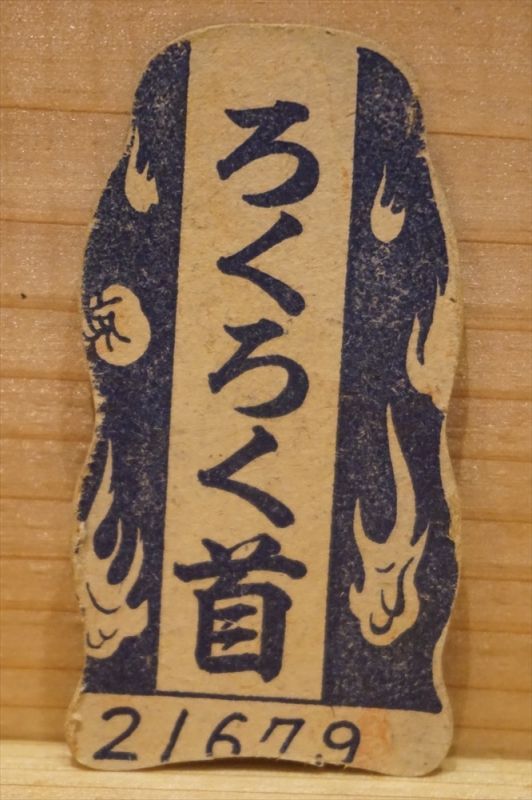 ろくろく首
21679